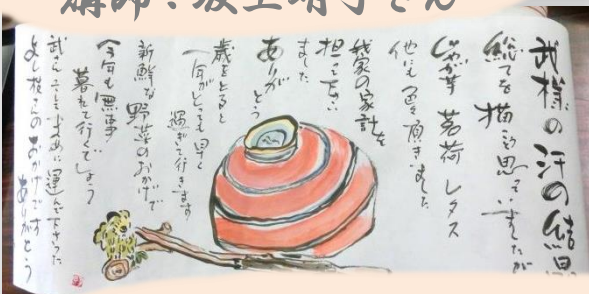 講師：坂上 子さん
武様の汗の結
総てを描こう思っていましたが
じゃが芋 茗荷 レタス
他にも色々頂きました
我家の家計を
担って下さい
ました
ありがとう
歳をとると
一年がとっても早く
過ぎて行きます
新鮮な野菜のおかげで
今年も無事
暮れて行くでしょう
武さん そしてまめに運んで下さった
枝さんのおかげです
ありがとう